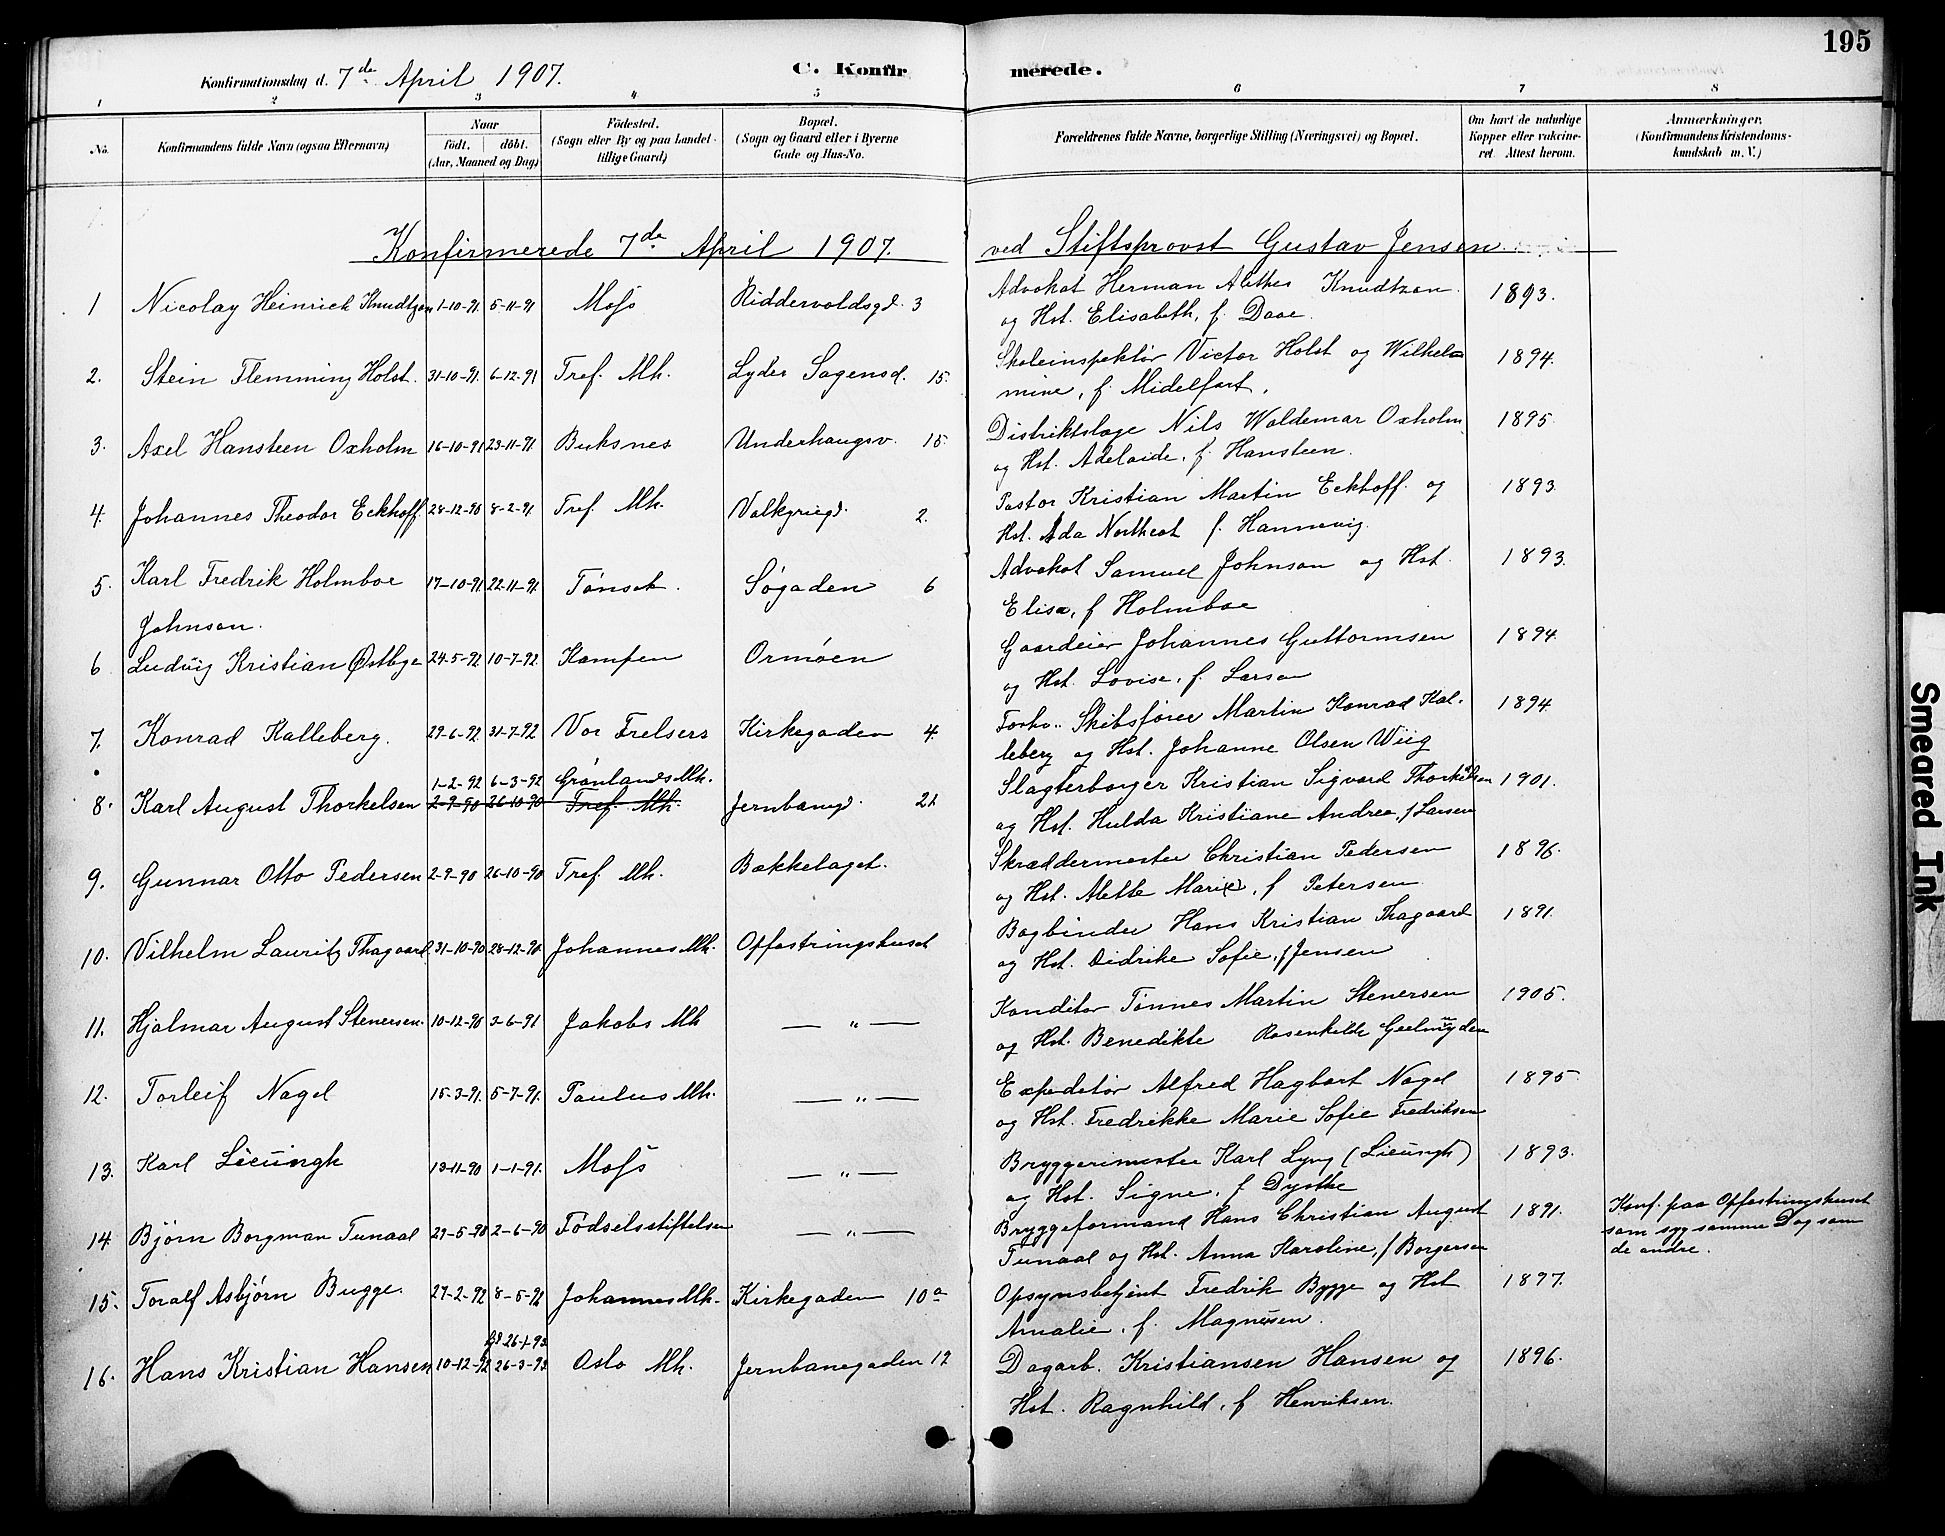 195
Konfirmationsdag d. 7de April 1907. C. Konfirmerede.
1 2 3 4 5 6 7 8
No. Konfirmandens fulde Navn (ogsaa Efternavn) Naar født. døbt. (Aar, Maaned og Dag) Fødested. (Sogn eller By og paa Landet tillige Gaard) Bopæl. (Sogn og Gaard eller i Byerne Gade og Hus-No. Forældrenes fulde Navne, borgerlige Stilling (Næringsvei) og Bopæl. Om havt de naturlige Kopper eller vakcineret. Attest herom. Anmærkninger. (Konfirmandens Kristendomskundskab m.V.)
Konfirmerede 7de April 1907. ved Stiftsprovst Gustav Jensen
1 Nicolay Heinrich Knudtzon 1-10-91. 5-11-91 Moss Riddervoldsgd. 3 Advokat Herman Alethes Knudtzon 1893.
og Hst. Elisabeth, f. Daae.
2. Stein Flemming Holst. 31-10-91. 6-12-91 Tref. Mh. Lyder Sagensd. 15. Skoleinspektør Victor Holst og Wilhel= 1894.
mine, f. Midelfart.
3. Axel Hansteen Oxholm 16-10-91 23-11-91 Buksnes Underhaugsv. 15. Distriktslæge Nils Waldemar Oxholm 1895.
og Hst. Adelaide, f. Hansteen.
4. Johannes Theodor Eckhoff 28-12-90 8-2-91. Tref. Mh. Valkyriegd. 2. Pastor Kristian Martin Eckhoff. og 1893
Hst. Ada Northcot f. Hannevig.
5. Karl Fredrik Holmboe 17-10-91. 22-11-91. Tønset. Søgaden 6 Advokat Samuel Johnson og Hst. 1893.
Johnson. Elisa, f Holmboe
6 Ludvig Kristian Østbye 24-5-92 10-7-92 Kampen Ormøen Gaardeier Johannes Guttormsen 1894.
og Hst. Lovise, f. Larsen
7. Konrad Kalleberg. 29-6-92. 31-7-92 Vor Frelsers Kirkegaden 4. Forhv. Skibsfører Martin Konrad Kal- 1894.
leberg og Hst. Johanne Olsen Wiig
1-2-92 6-3-92 Grønlands Mh.
8. Karl August Thorkelsen 2-9-90 26-10-90 Tref. Mh. Jernbangd. 21 Slagterborger Kristian Sigvard Thorkelsen 1901.
og Hst. Hulda Kristiane Andrea, f Larsen
9. Gunnar Otto Pedersen 2-9-90 26-10-90 Tref Mh. Bækkelaget. Skræddermester Christian Pedersen 1896.
og Hst. Alette Marie, f Petersen
10. Vilhelm Lauritz Thagaard. 31-10-90 28-12-90 Johannes Mh. Opfostringshuset Bogbinder Hans Kristian Thagaard 1891.
og Hst. Didrike Sofie, f Jensen
11. Hjalmar August Stenersen. 10-12-90 3-6-91 Jakobs Mh — " — Konditor Tønnes Martin Stenersen 1905.
og Hst. Benedikte Rosenkilde Geelmuyden
12. Torleif Nagel 15-3-91. 5-7-91. Paulus Mh. — " — Expeditør Alfred Hagbart Nagel 1895.
og Hst. Fredrikke Marie Sofie Fredriksen
13. Karl Lieungh 13-11-90 1-1-91. Moss — " — Bryggerimester Karl Lyng (Lieungh) 1893.
og Hst. Signe, f Dysthe
14. Bjørn Borgman Tunaal 29-5-90 2-6-90 Fødselsstiftelsen — " — Bryggeformand Hans Christian August 1891. Konf. paa Opfostringshuset
Tunaal og Hst. Anna Karoline, f Borgersen som syg samme Dag som
de andre.
15. Toralf Asbjørn Bugge. 27-2-92 8-5-92 Johannes Mh. Kirkegaden 10a Opsynsbetjent Fredrik Bygge og Hst 1897.
Amalie, f. Magnusen.
26-1-93
16. Hans Kristian Hansen 10-12-92 26-3-93 Oslo Mh. Jernbanegaden 12 Dagarb. Kristiansen Hansen og 1896.
Hst. Ragnhild, f Henriksen.
Smeared Ink